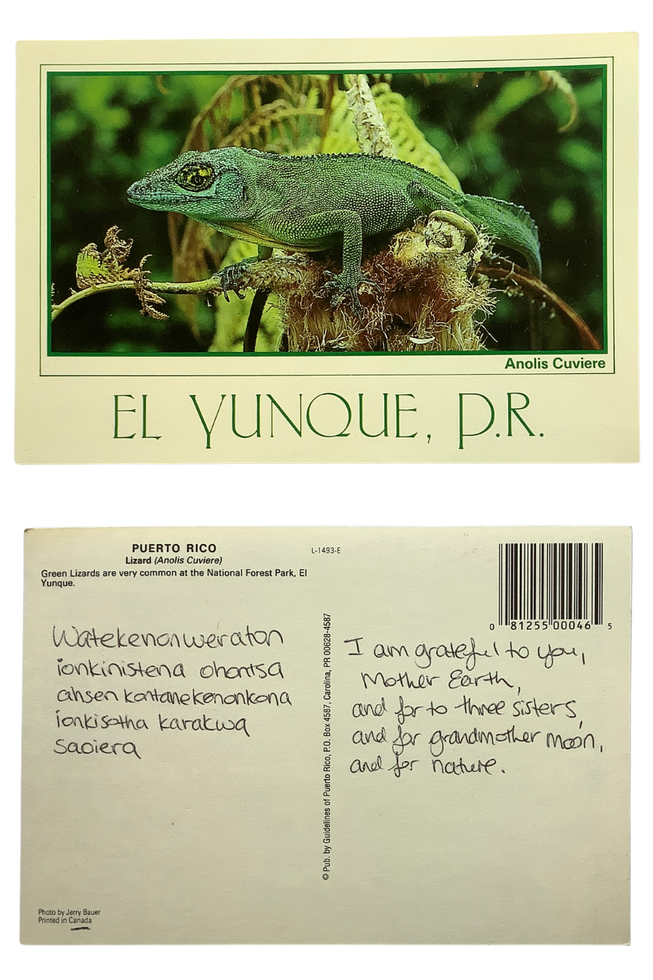 Anolis Cuviere
EL YUNQUE, P.R.
PUERTO RICO
Lizard (Anolis Cuviere)
Green Lizards are very common at the National Forest Park, El
Yunque.
L-1493-E
0 81255 00046 5
Watekenonweraton
ionkinistena ohontsa
ahsen kontatekenonkona
ionkisotha karakwa
saoiera
© Pub. by Guidelines of Puerto Rico, P.O. Box 4587, Carolina, PR 00628-4587
I am grateful to you,
Mother Earth,
and for to three sisters,
and for grandmother moon,
and for nature.
Photo by Jerry Bauer
Printed in Canada